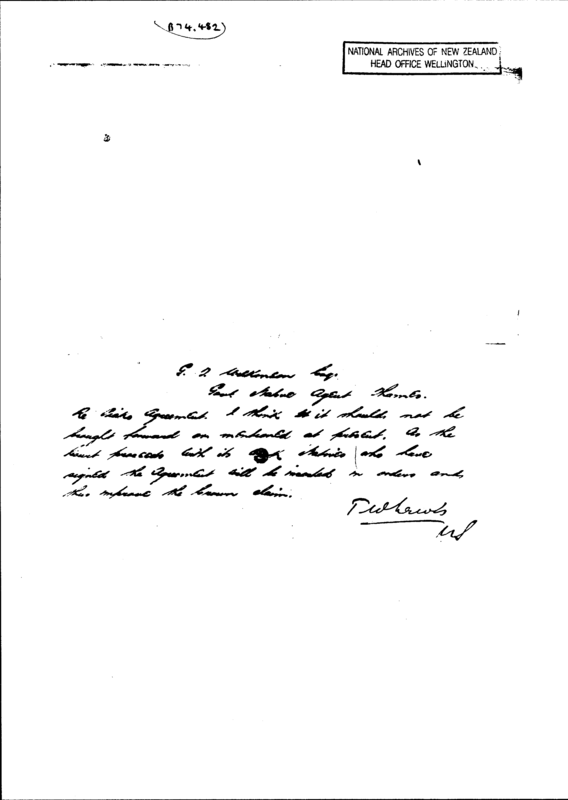 (B74.482)
NATIONAL ARCHIVES OF NEW ZEALAND
HEAD OFFICE WELLINGTON
G. T Wilkinson Esq.
Govt Native Agent Thames.
Re Agreement. I think it should not be
brought forward or mentioned at present. As the
Court proceeds with its natives who have
signed the Agreement will be inserted in orders and
thus improve the Crown claim.
TW Lewis
US